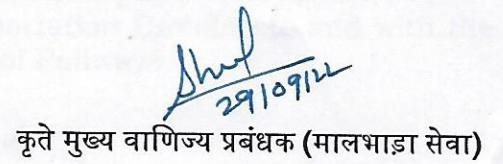 29/09/22
कृते मुख्य वाणिज्य प्रबंधक (मालभाड़ा सेवा)